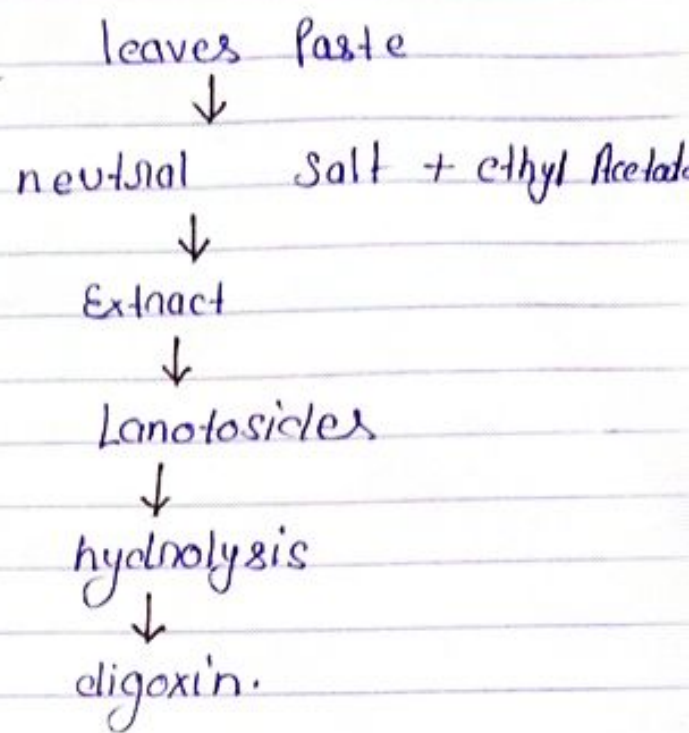 leaves Paste
↓
neutral Salt + ethyl Acetate
↓
Extract
↓
Lanotosides
↓
hydrolysis
↓
digoxin.